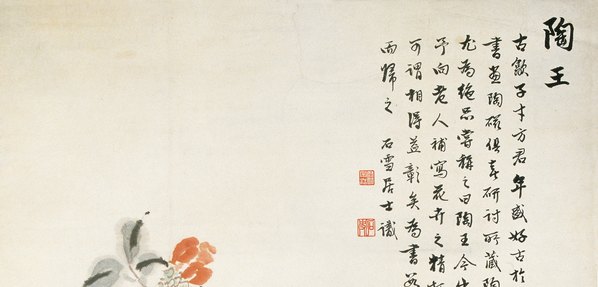 陶王
古歙子才方君年盛好古於
書畫陶磁俱喜研討所藏陶
尤為絕品嘗稱之曰陶王今出
予向老人補寫花卉之精
可謂相得益彰矣為書
而歸之 石雪居士識